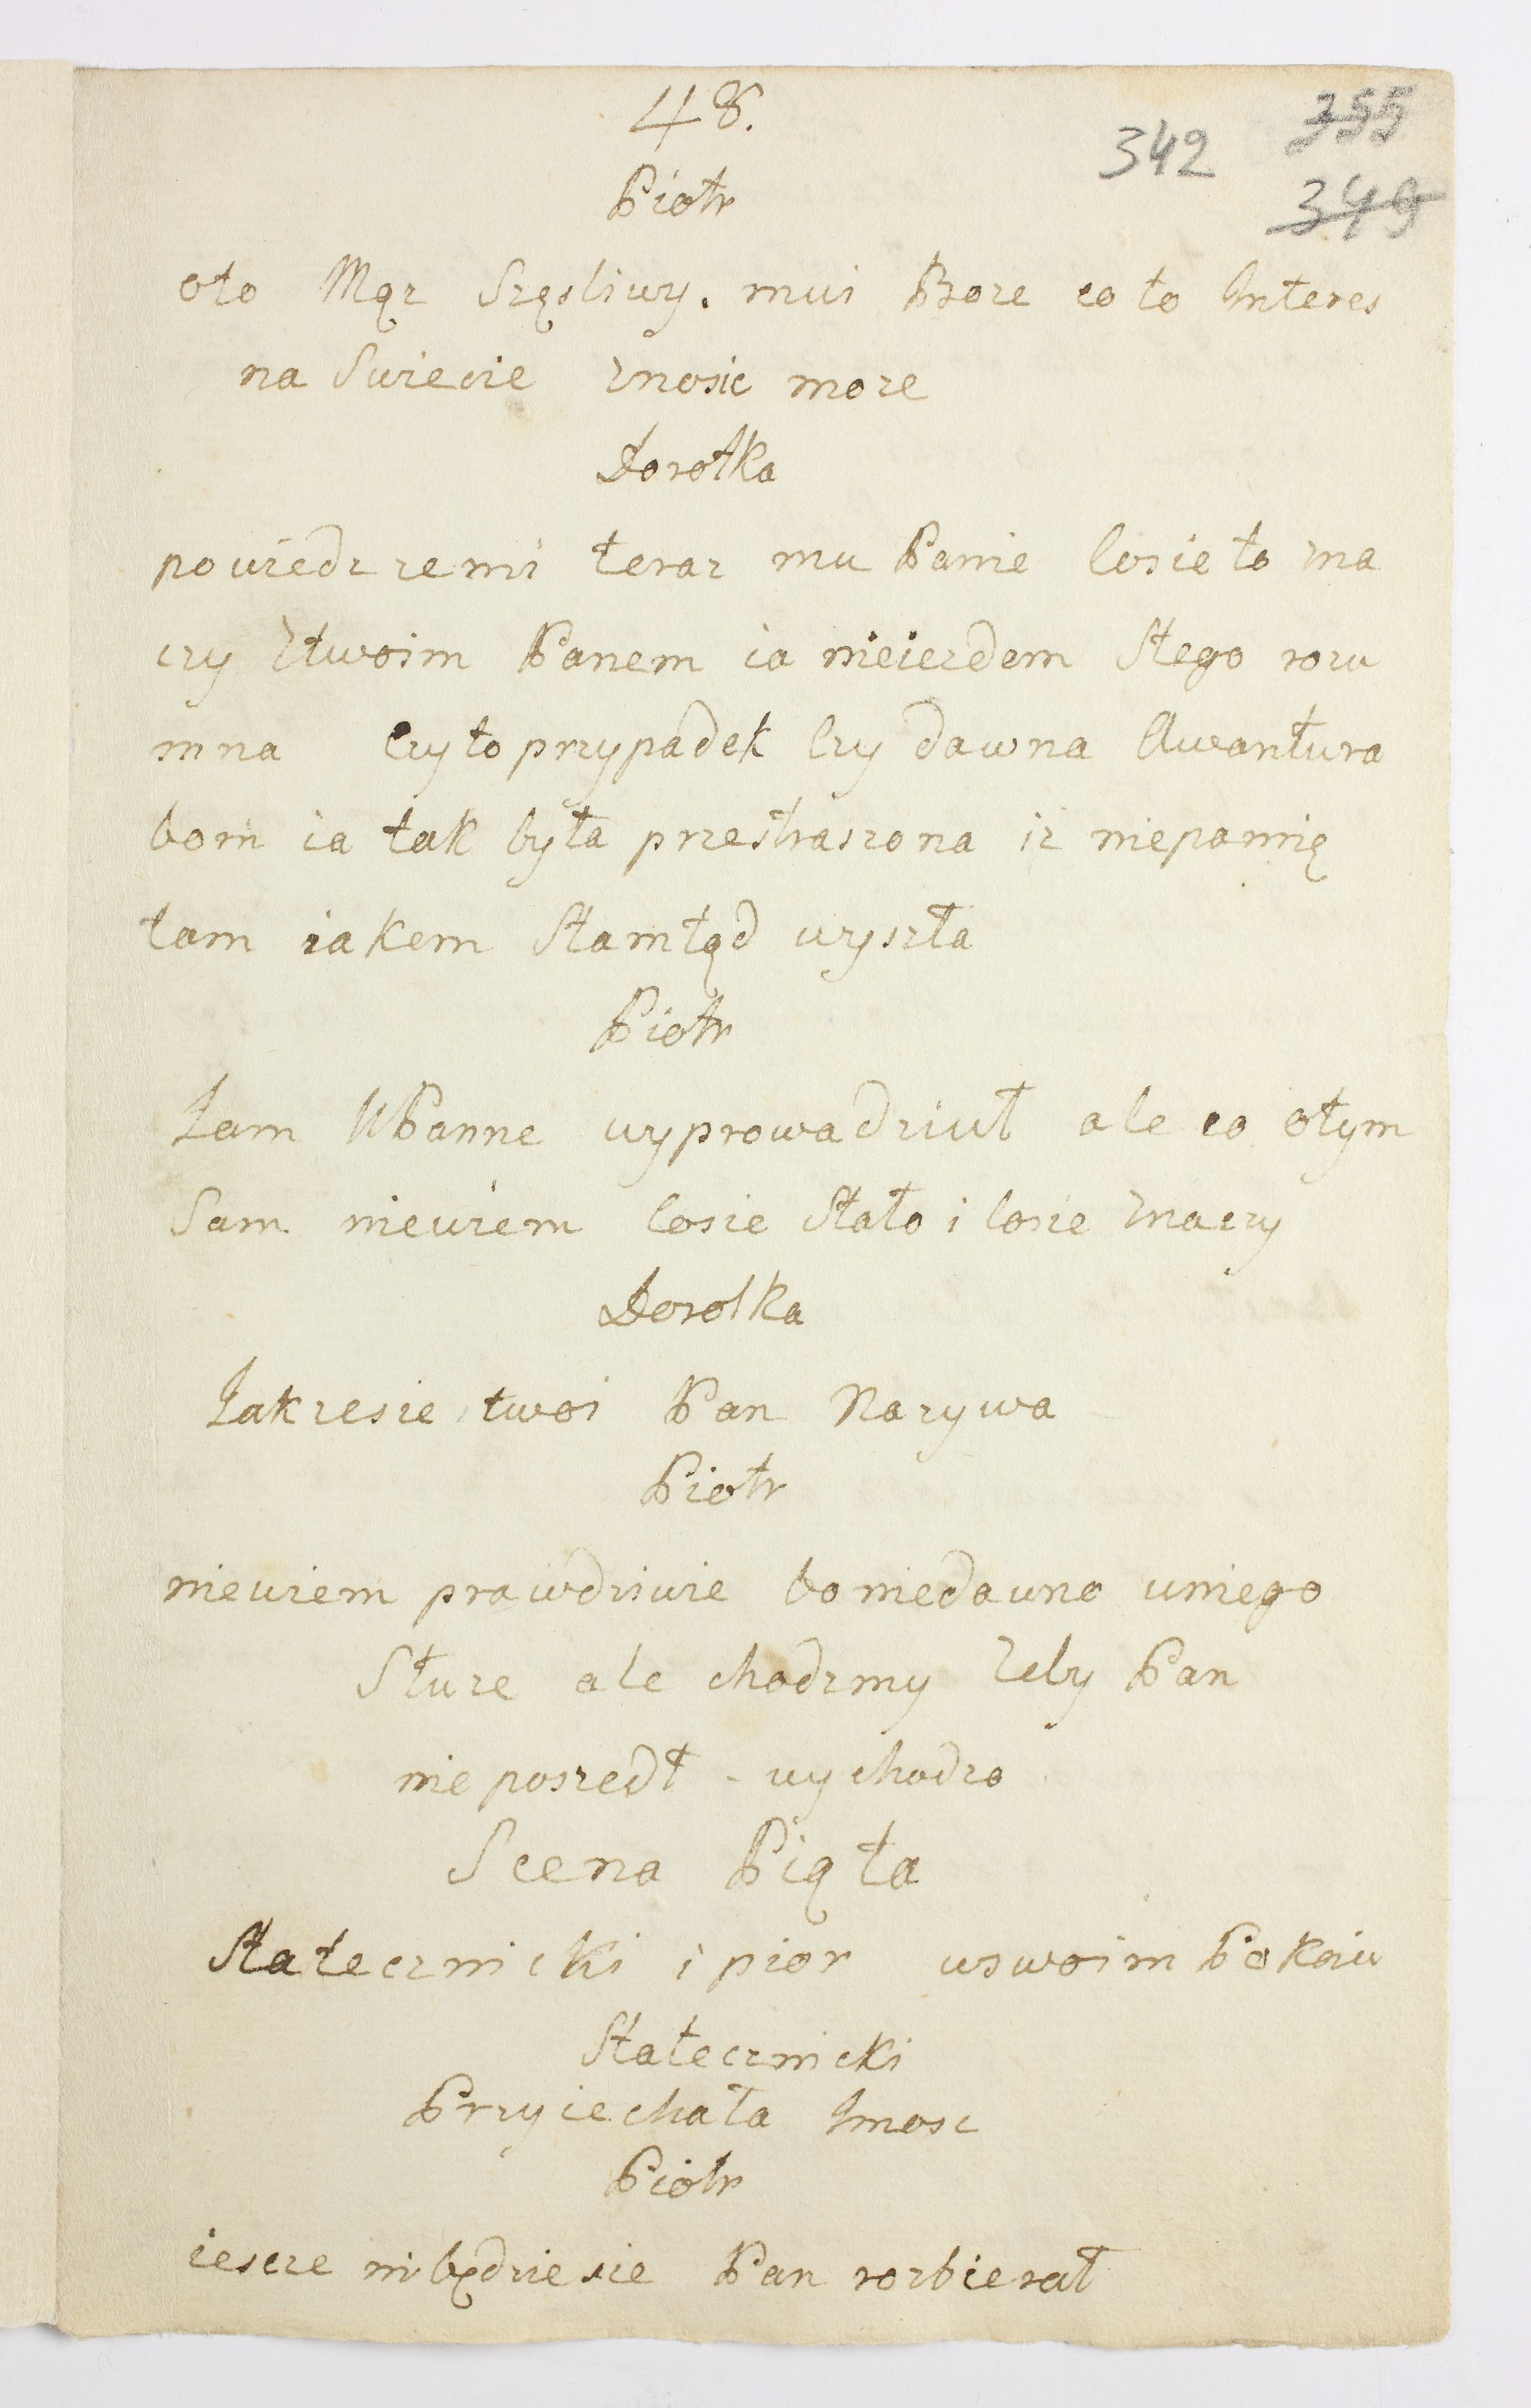 48.
342 355
349
Piotr
oto Mąz Szęsliwy. mui Boze co to Interes
na Swiecie znosic moze
Dorotka
powiedz zemi teraz mu Panie Cosie to zna
czy Ztwoim Panem ia nieiezdem Stego rozu
mna Czyto przypadek Czy dawna Awantura
bom ia tak była przestraszona iz niepamię
tam iakem Stamtąd wyszła
Piotr
Jam WPanne wyprowadziuł ale co otym
Sam niewiem Cosie Stało i Cosie znaczy
Dorotka
Jakzesie twoi Pan Nazywa
Piotr
niewiem prawdziwie boniedawno uniego
Słuze ale chodzmy Zeby Pan
nie poszedł - wychodzo
Scena Piąta
Statecznicki i pior wswoim Pokoiu
Statecznicki
Przyiechała Jmosc
Piotr
iescze nibędziesie Pan rozbierał